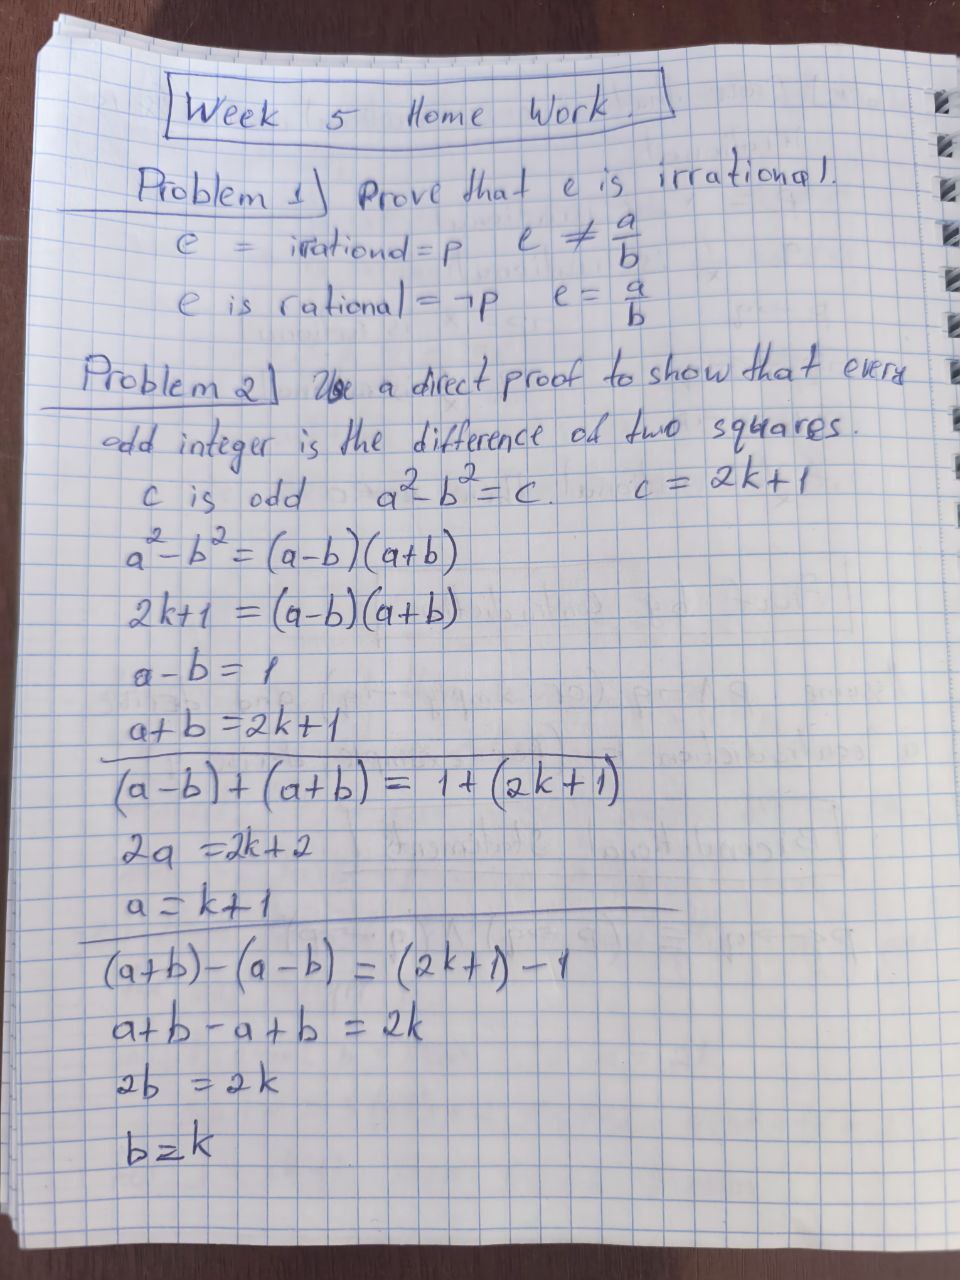 Week 5 Home Work.
Problem 1) Prove that e is irrational.
e = irrationd = p e ≠ a/b
e is rational = ¬p e = a/b
Problem 2) Use a direct proof to show that every
odd integer is the difference of two squares.
c is odd a² - b² = c. c = 2k+1
a² - b² = (a-b)(a+b)
2k+1 = (a-b)(a+b)
a - b = 1
a+b = 2k+1
(a-b)+(a+b) = 1+(2k+1)
2a = 2k+2
a = k+1
(a+b)-(a-b) = (2k+1)-1
a+b-a+b = 2k
2b = 2k
b = k